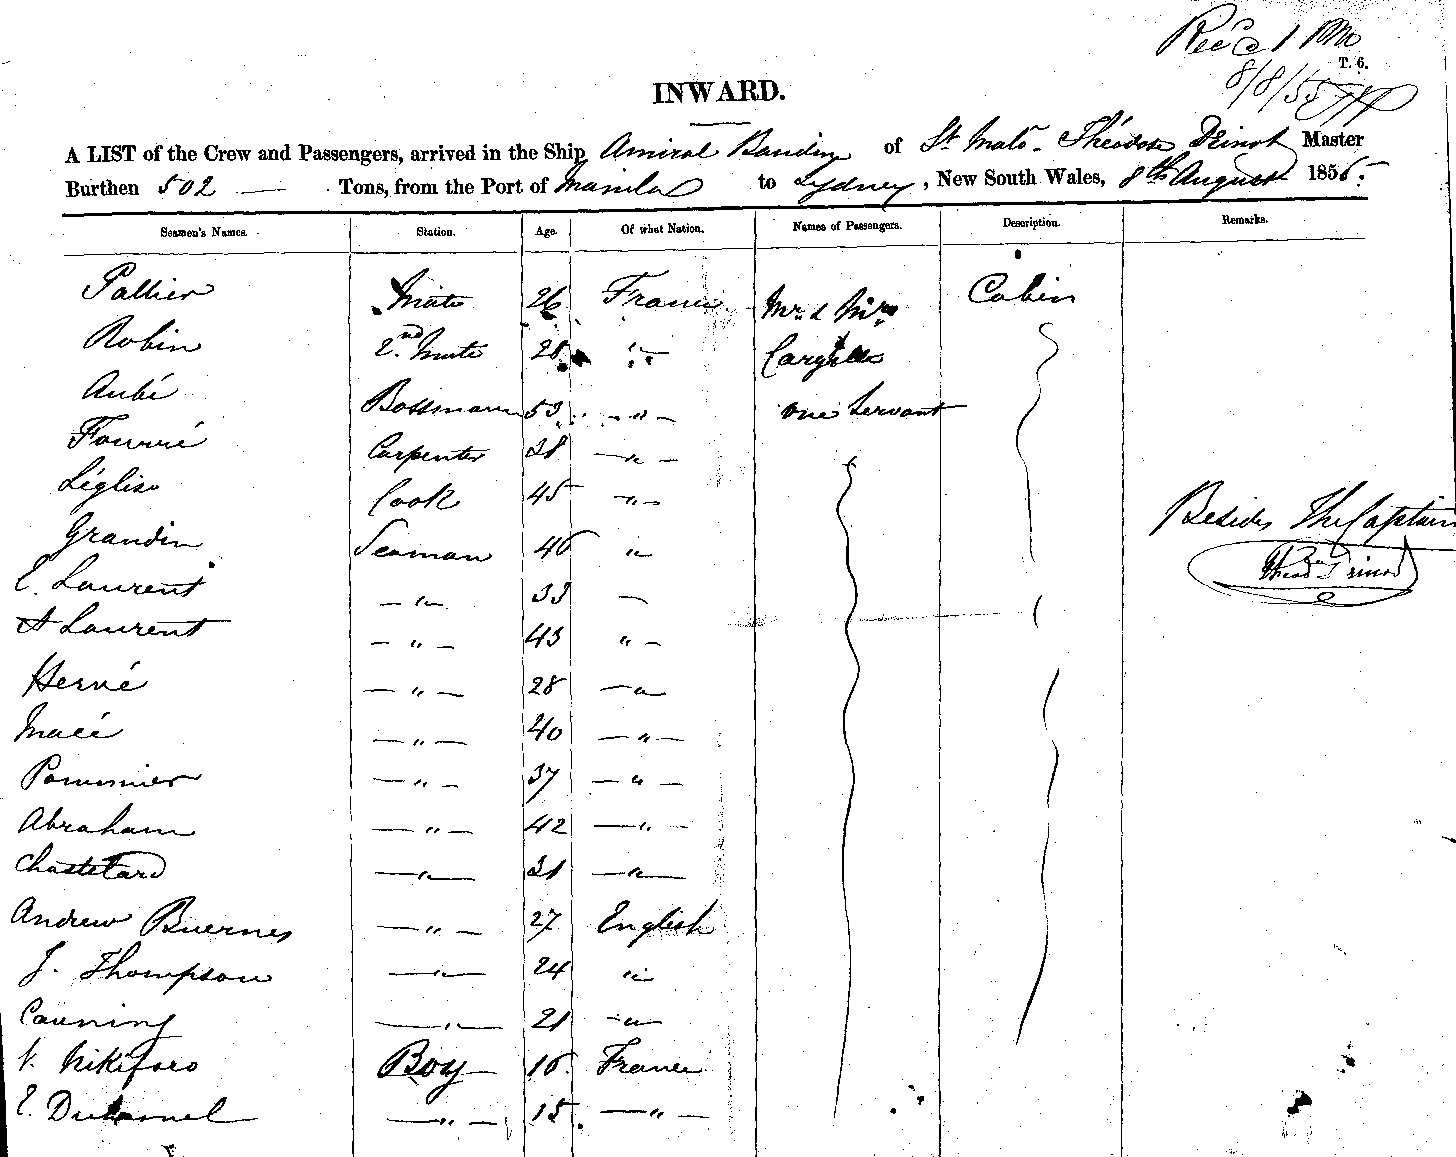 Rec'd 1 PM
T. 6.
8/8/55
INWARD.
A LIST of the Crew and Passengers, arrived in the Ship Amiral Baudin of St Malo - Théodose Drinot Master
Burthen 502 — Tons, from the Port of Manila to Sydney, New South Wales, 8th August 1855.
Seamen's Names. Station. Age. Of what Nation. Names of Passengers. Description. Remarks.
Pallier Mate 26 France Mr. & Mrs. Cabin
Robin 2nd Mate 28 " Cargill
Aubé Bossmann 53 — " — one Servant
Fourré Carpenter 38 — " —
Légliso Cook 45 — " —
Besides The Captain
Grandin Seaman 46 "
E. Laurent — " — 33 —
A Laurent — " — 43 " —
Hervé — " — 28 — " —
Macé — " — 40 — " —
Pommier — " — 37 — " —
Abraham — " — 42 — " —
Chastetard — " — 31 — " —
Andrew Buernes — " — 27 English
J. Thompson — " — 24 "
Canning — " — 21 — " —
V. Nikiforo Boy 16 France
E. Duhamel — " — 15 — " —